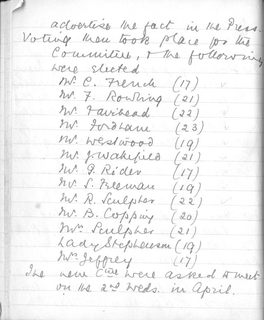 advertise the fact in the Press.
Voting then took place for the
Committee, & the following
were elected
Mr. C. French (17)
Mr. F. Rowning (21)
Mr. Fairhead (22)
Mr. Fordham (23)
Mr. Westwood (19)
Mr. J. Wakefield (21)
Mr. G. Rider (17)
Mr. S. Freeman (19)
Mr. R. Sculpher (22)
Mr. B. Copping (20)
Mrs. Sculpher (21)
Lady Stephenson (19)
Mr. Jeffrey (17)
The new Ctee were asked to meet
on the 2nd Weds. in April.